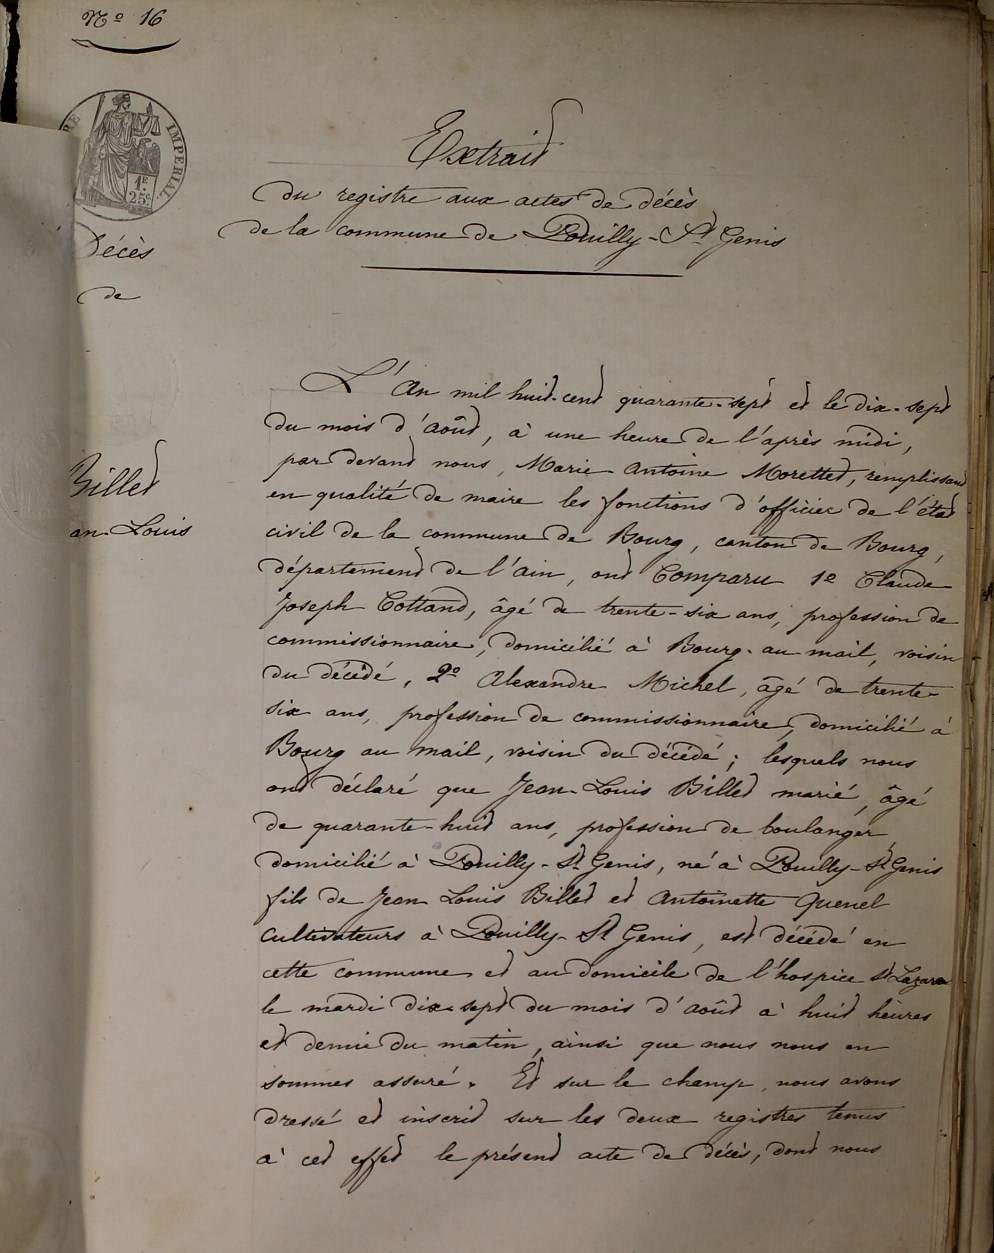 N° 16
RE IMPERIAL.
1F.
25c.
Extrait
du registre aux actes de décès
de la commune de Pouilly-St Genis
Décès
de
Billet
an-Louis
L'An mil huit-cent quarante-sept et le dix-sept
du mois d'août, à une heure de l'après midi,
par devant nous, Marie Antoine Morettet, remplissant
en qualité de maire les fonctions d'officier de l'état
civil de la commune de Bourg, canton de Bourg,
département de l'ain, ont Comparu 1° Claude
Joseph Cottand, âgé de trente-six ans, profession de
commissionnaire, domicilié à Bourg-au mail, voisin
du décédé, 2° Alexandre Michel, âgé de trente-
six ans, profession de commissionnaire, domicilié à
Bourg au mail, voisin du décédé; lesquels nous
ont déclaré que Jean-Louis Billet marié, âgé
de quarante-huit ans, profession de boulanger
domicilié à Pouilly-St Genis, né à Pouilly-St Genis
fils de Jean Louis Billet et Antoinette Quenel
Cultivateurs à Pouilly-St Genis, est décédé en
cette commune et au domicile de l'hospice St Lazare
le mardi dix-sept du mois d'août à huit heures
et demie du matin, ainsi que nous nous en
sommes assuré. Et sur le champ, nous avons
dressé et inscrit sur les deux registres tenus
à cet effet le présent acte de décès, dont nous